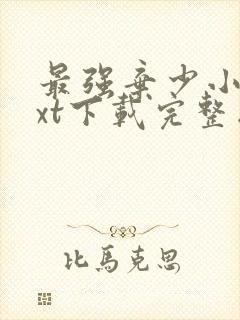 最强弃少小
xt下载完整
比马克思